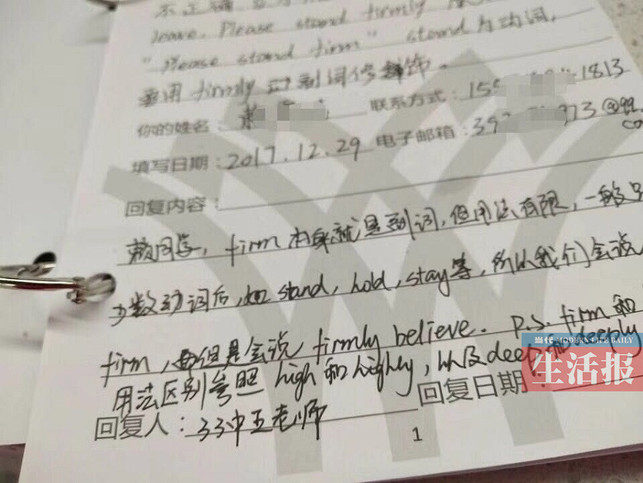 不正确,
leave. Please stand firmly
"Please stand firm" stand为动词,
要用 firmly 对 副词修饰。
你的姓名: 联系方式: 155 1813
填写日期: 2017.12.29 电子邮箱: 392 973@qq.
co
回复内容:
同学, firm 本身就是副词, 但用法有限, 一般只
少数动词后, 如 stand, hold, stay等, 所以我们会说
firm, 但是会说 firmly believe. P.S. firm 和
用法区别参照 high 和 highly, 以及deep 和deeply
当代 MODERN LIFE DAILY
生活报
回复日期
回复人: 33中王老师
1